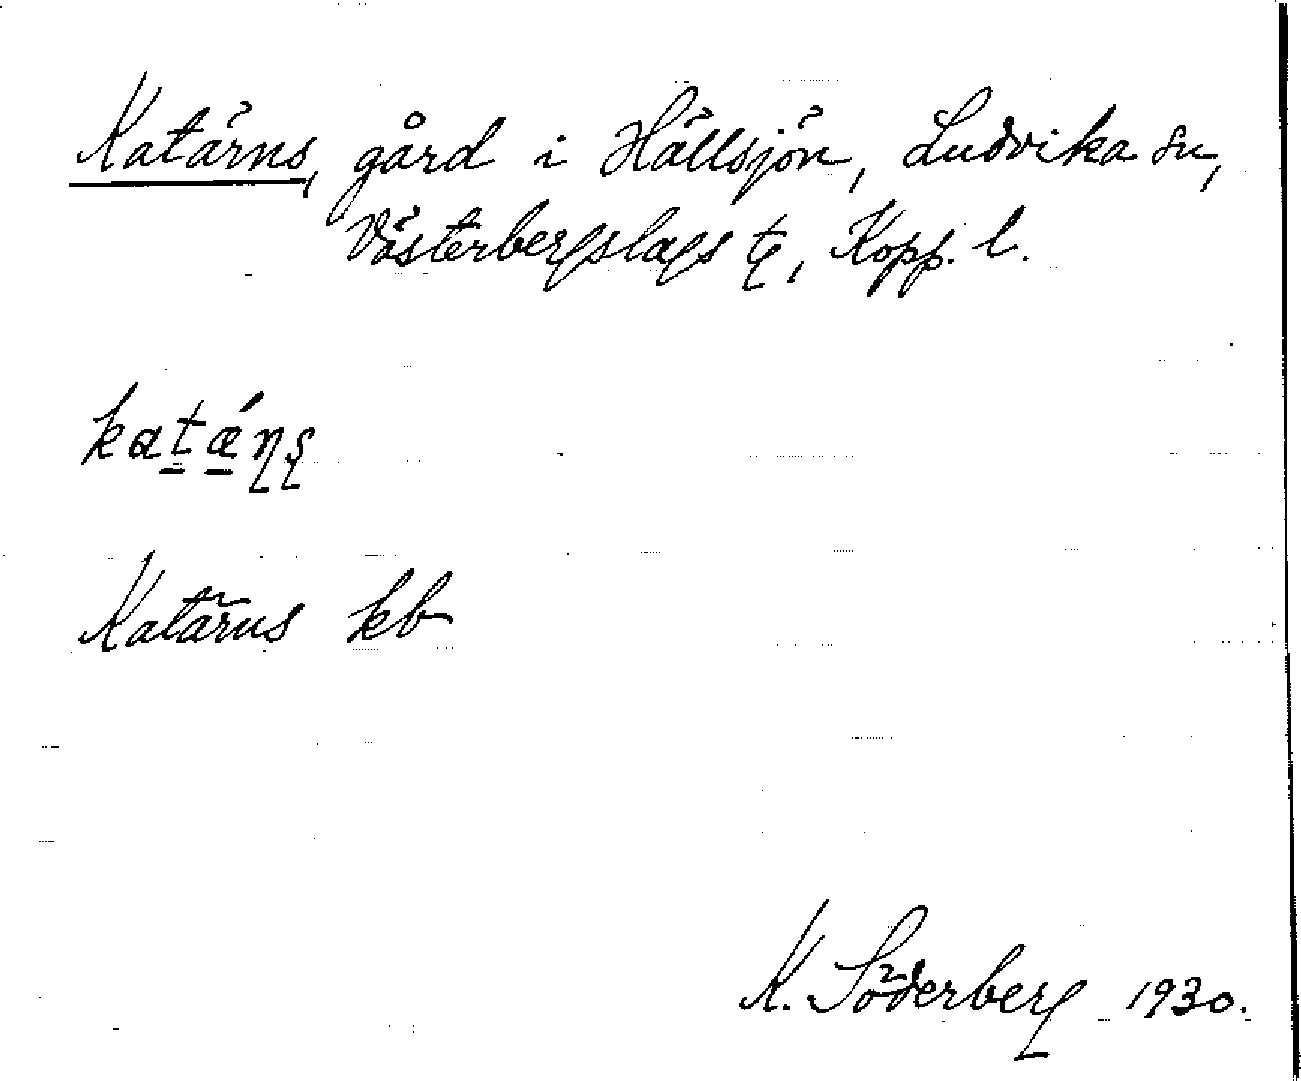 Katärns, gård i Hällsjön, Ludvika sn,
Västerbergslags tg, Kopp. l.
katǽṇṣ
Katärns kb
K. Söderberg 1930.